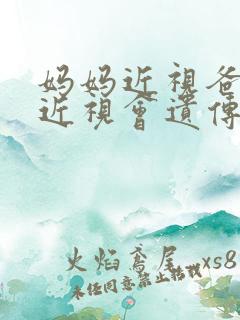 妈妈近視爸
近視會遺傳
火焰鸢尾 xs8
未经同意禁止转载